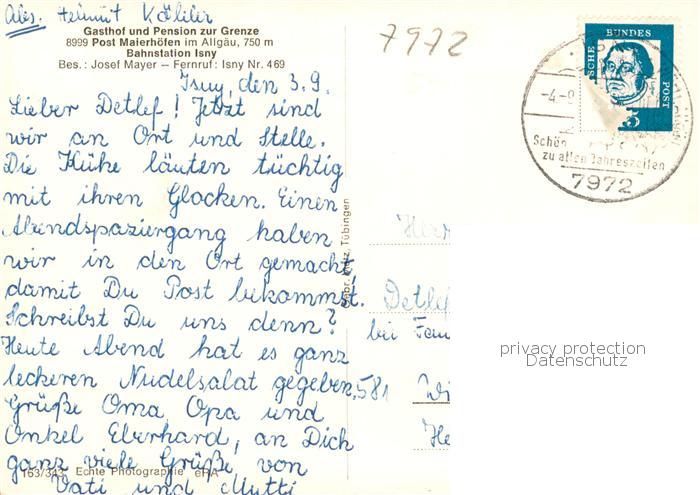 Abs. Helmut
Gasthof und Pension zur Grenze
8999 Post Maierhöfen im Allgäu, 750 m
Bahnstation Isny
Bes.: Josef Mayer – Fernruf: Isny Nr. 469
7972
Isny, den 3.9.
Lieber Detlef! Jetzt sind
wir an Ort und Stelle.
Die Kühe läuten tüchtig
mit ihren Glocken. Einen
Abendspaziergang haben
wir in den Ort gemacht,
damit Du Post bekommst.
Schreibst Du uns denn?
Heute Abend hat es ganz
leckeren Nudelsalat gegeben.
Grüße Oma Opa und
Onkel Eberhard, an Dich
ganz viele Grüße von
Vati und Mutti
163/343 Echte Photographie
Tübingen
DEUTSCHE BUNDESPOST
5
Schön
zu allen Jahreszeiten
7972
Herr
Detlef
bei Fam
581 Wi
He
privacy protection
Datenschutz